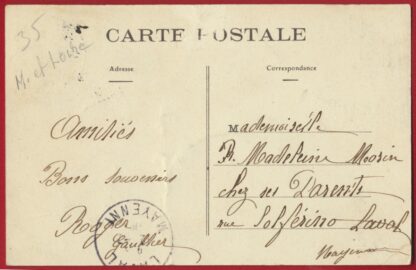 35
M. et Loire
CARTE POSTALE
Adresse
Correspondance
Amitiés
Bons souvenirs
Roger
Gauthier
LAVAL
MAYENNE
Mademoiselle
Madeleine
chez ses Parents
rue Solférino Laval
Mayenne